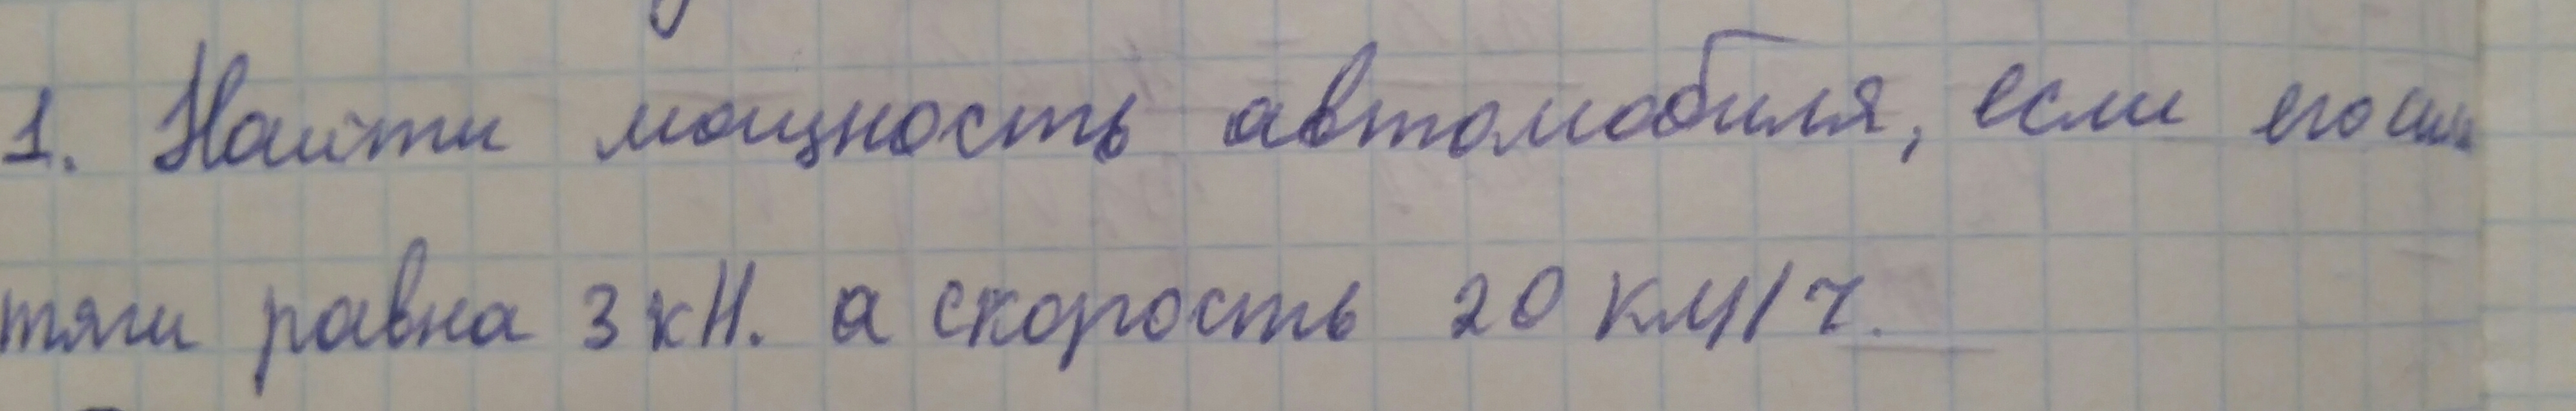 1. Найти мощность автомобиля, если его сила
тяги равна 3 кН. а скорость 20 км/ч.